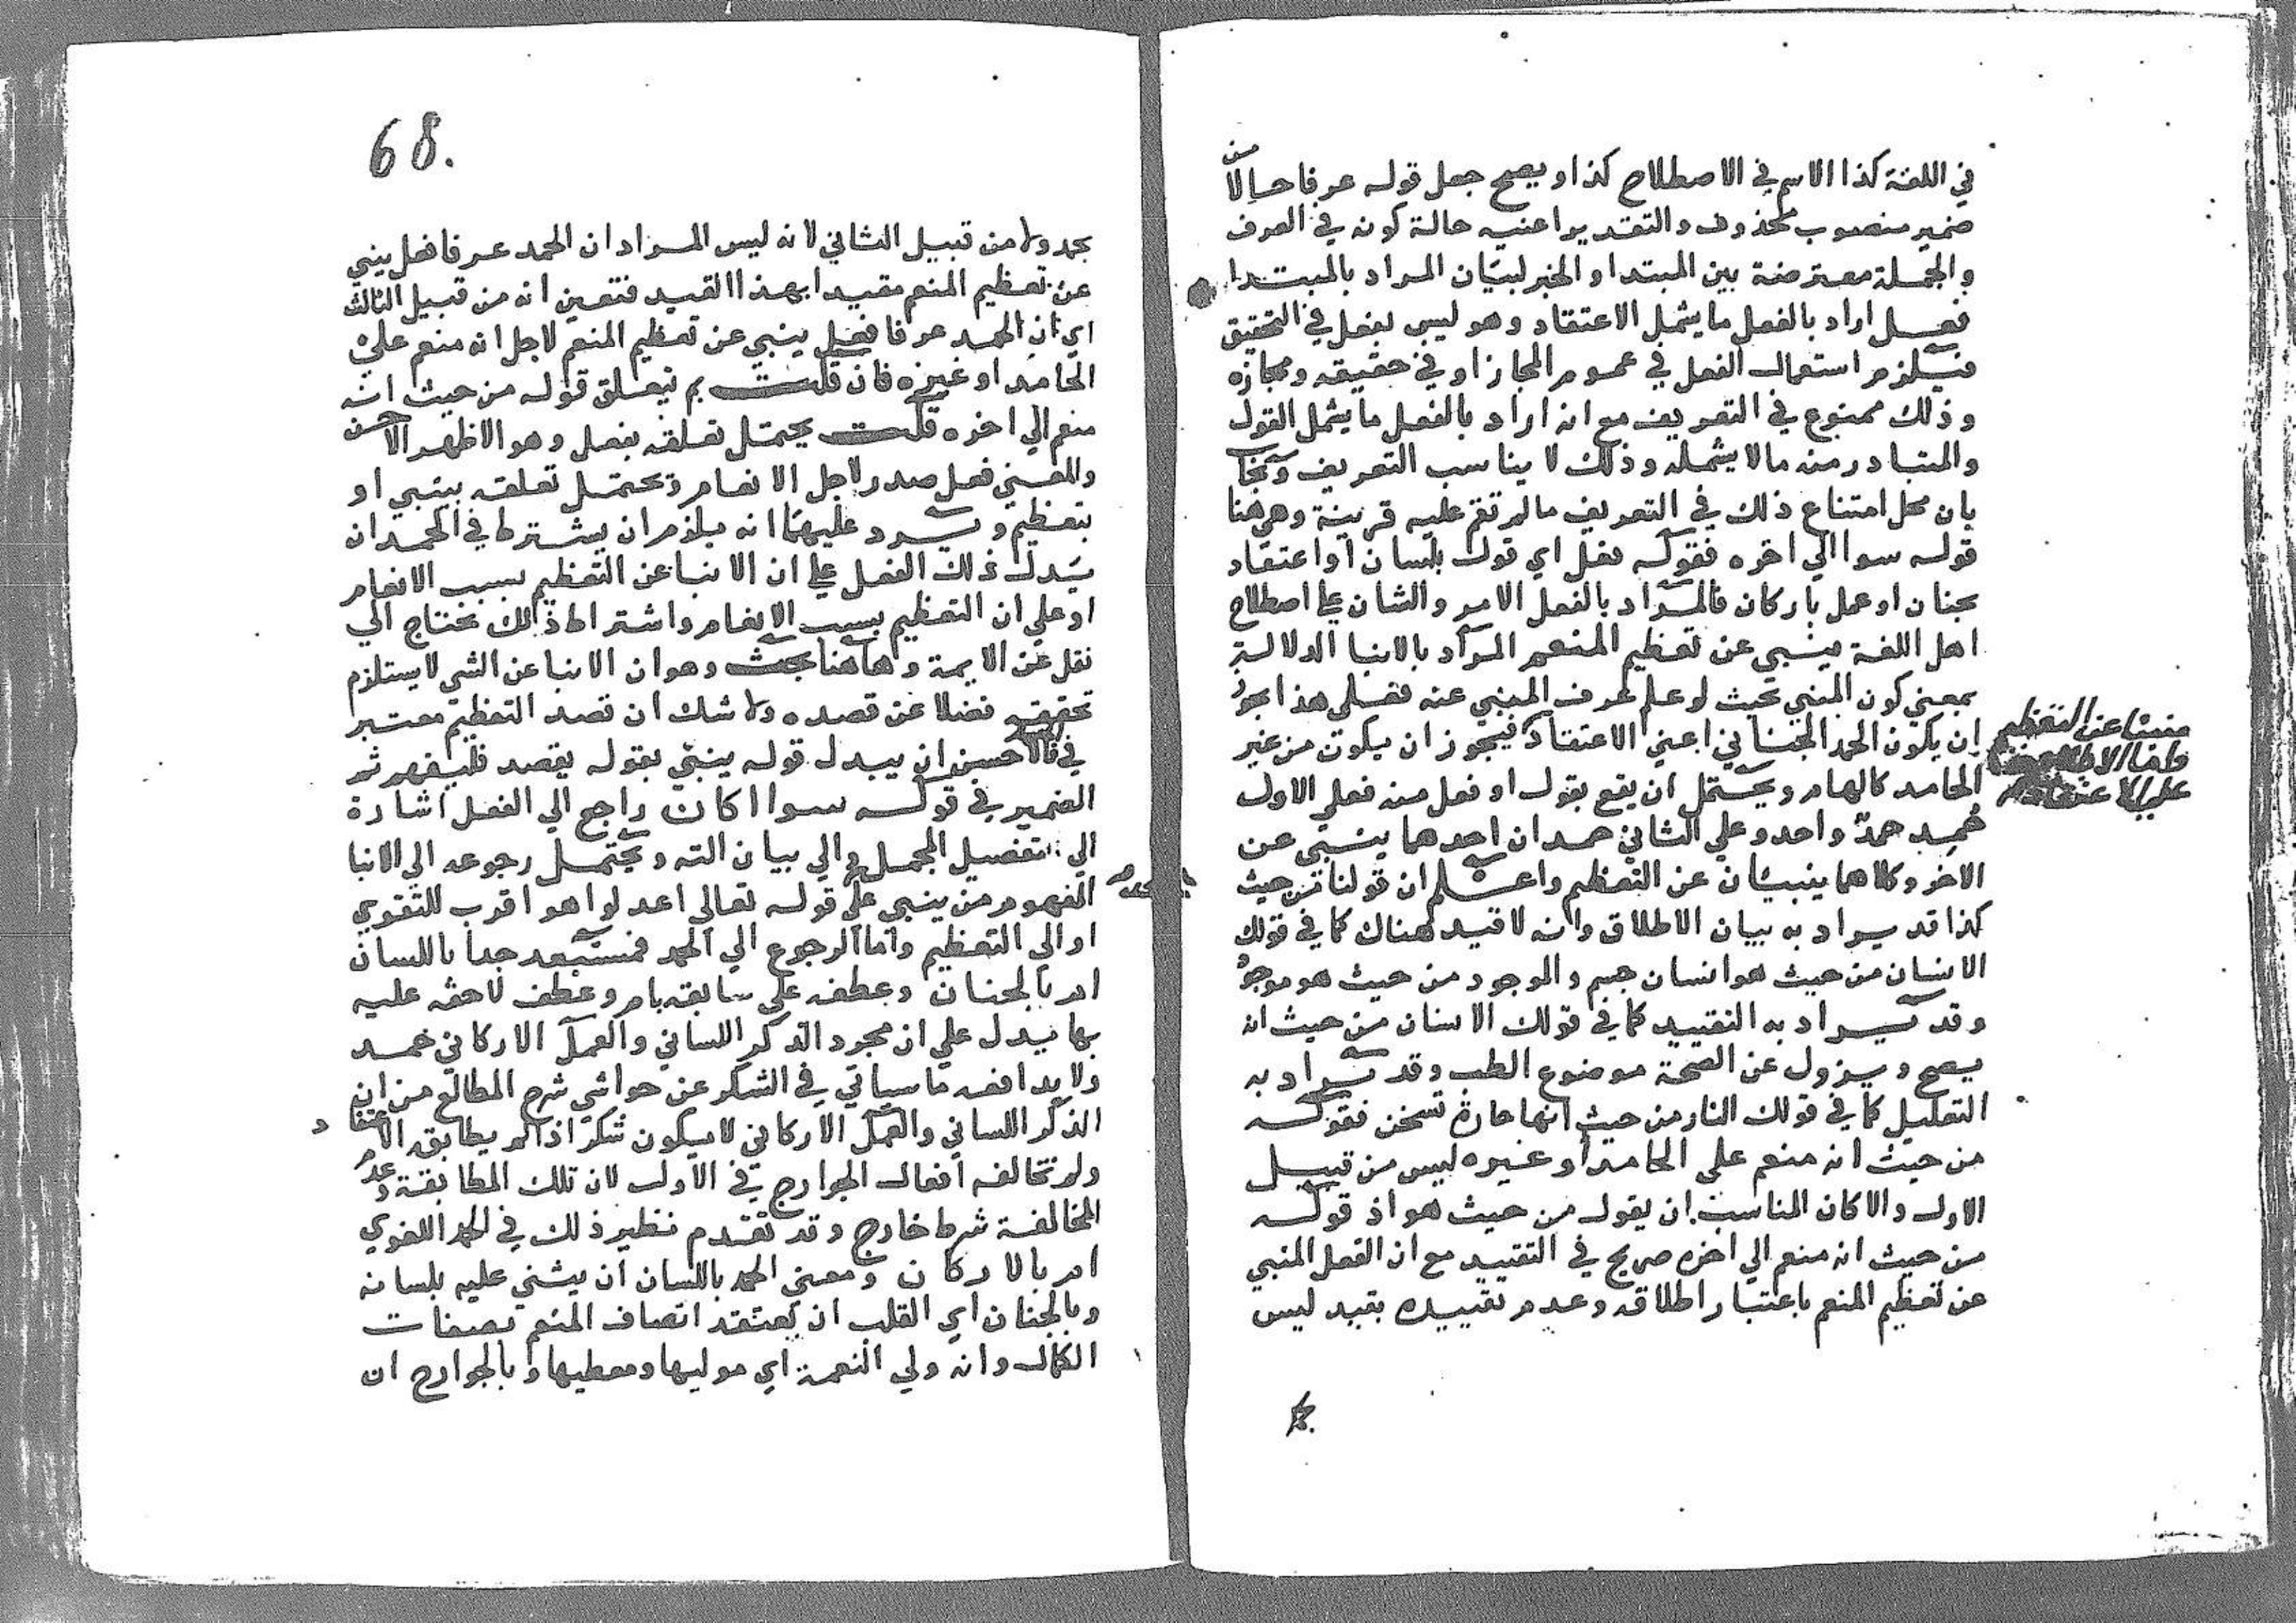 في اللغة كذا الاسم في الاصطلاح كذا ويصح جعل قوله عرفا حالا من
ضمير منصوب محذوف والتقدير اعنيه حالة كونه في العرف
والجملة معترضة بين المبتدا والخبر لبيان المراد بالمبتدا
فعل اراد بالفعل ما يشمل الاعتقاد وهو ليس بفعل في التحقيق
فيلزم استعمال الفعل في عموم المجاز او في حقيقه ومجازه
وذلك ممنوع في التعريف مع انه اراد بالفعل ما يشمل القول
والمتبادر منه مالا يشمله وذلك لا يناسب التعريف
بان محل امتناع ذلك في التعريف ما لم تقم عليه قرينة وهي هنا
قوله سوا الي اخره فقوله فعل اي قول بلسان او اعتقاد
بجنان او عمل باركان فالمراد بالفعل الامر والشان علي اصطلاح
اهل اللغة ينبي عن تعظيم المنعم المراد بالانبا الدلالة
بمعني كون المنبي بحيث لو علم لعرف المنبي عنه فعلي هذا يجوز
ان يكون الحمد الجناني اعني الاعتقاد فيجوز ان يكون من غير
الحامد كالهام ويحتمل ان يقع بقول او فعل منه فعلي الاول
حمد واحد وعلي الثاني حمدان احدهما ينبي عن
الاخر وكلاهما ينبيان عن التعظيم واعلم ان قولنا من حيث
كذا قد يراد به بيان الاطلاق وانه لا قيد هناك كما في قولك
الانسان من حيث هو انسان جسم والموجود من حيث هو موجود
وقد يراد به التقييد كما في قولك الانسان من حيث انه
يصح ويزول عن الصحة موضوع الطب وقد يراد به
التعليل كما في قولك النار من حيث انها حارة تسخن فقوله
من حيث انه منعم علي الحامد او غيره ليس من قبيل
الاول والا كان المناسب ان يقول من حيث هو اذ قوله
من حيث انه منعم الي اخره صريح في التقييد مع ان الفعل المنبي
عن تعظيم المنعم باعتبار اطلاقه وعدم تقييده بقيد ليس
منبئا عن التعظيم
علي الاعتقاد
68.
بحمد ولا من قبيل الثاني لانه ليس المراد ان الحمد عرفا فعل ينبي
عن تعظيم المنعم مقيدا بهذا القيد فتعين انه من قبيل الثالث
اي ان الحمد عرفا فعل ينبي عن تعظيم المنعم لاجل انه منعم علي
الحامد او غيره فان قلت بم يتعلق قوله من حيث انه
منعم الي اخره قلت يحتمل تعلقه بفعل وهو الاظهر الاحسن
والمعني فعل صدر لاجل الانعام ويحتمل تعلقه بينبي او
بتعظيم ويرد عليهما انه يلزم ان يشترط في الحمد ان
يدل ذلك الفعل علي ان الانبا عن التعظيم بسبب الانعام
او علي ان التعظيم بسبب الانعام واشتراط ذلك يحتاج الي
نقل عن الايمة وهاهنا بحث وهو ان الانبا عن الشي لا يستلزم
تحققه فضلا عن قصده ولا شك ان قصد التعظيم معتبر
في فالاحسن ان يبدل قوله ينبي بقوله يقصد فليفهم ثم
الضمير في قوله سوا اكان راجع الي الفعل اشارة
الي تفصيل المجمل والي بيان الته ويحتمل رجوعه الي الانبا
المفهوم من ينبي علي قوله تعالي اعدلوا هو اقرب للتقوي
او الي التعظيم واما الرجوع الي الحمد فمستبعد جدا باللسان
ام بالجنان وعطفه علي سابقه بام وعطف لاحقه عليه
بها يدل علي ان مجرد الذكر اللساني والعمل الاركاني حمد
ولا يدافعه ما سياتي في الشكر عن حواشي شرح المطالع من ان
الذكر اللساني والعمل الاركاني لا يكون شكرا اذا لم يطابق الاعتقاد
ولم تخالفه افعال الجوارح في الاول لان تلك المطابقة وعدم
المخالفة شرط خارج وقد تقدم نظير ذلك في الحمد اللغوي
ام بالاركان ومعني الحمد باللسان ان يثني عليه بلسانه
وبالجنان اي القلب ان يعتقد اتصاف المنعم بصفات
الكمال وانه ولي النعمة اي موليها ومعطيها وبالجوارح ان